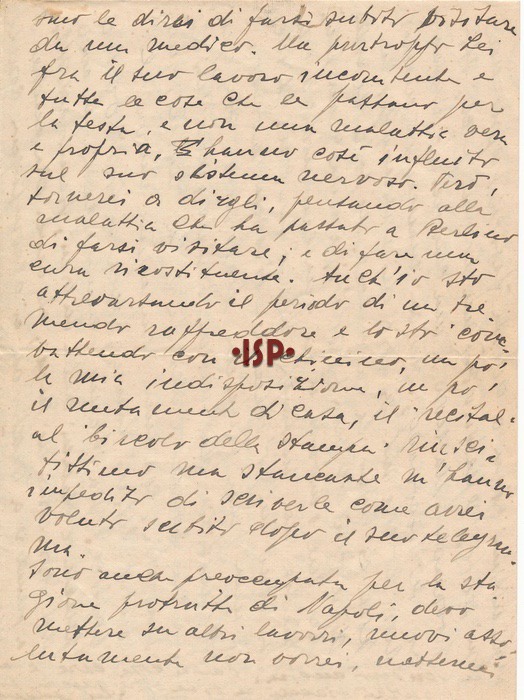 le direi di farsi subito visitare
da un medico. Ma purtroppo Lei
fra il suo lavoro incontente e
tutte le cose che le passano per
la testa, e non una malattia vera
e propria, hanno così influito
sul suo sistema nervoso. Però,
tornerei a dirgli, pensando alla
malattia che ha passato a Berlino
di farsi visitare, e di fare una
cura ricostituente. Anch'io sto
attraversando il periodo di un tre
mendo raffreddore e lo sto com
battendo con chinino, un po'
la mia indisposizione, un po'
il mutamento di casa, il recital
al "Circolo della Stampa" riusci
tissimo ma stancante m'hanno
impedito di scriverle come avrei
voluto subito dopo il suo telegram
ma.
Sono anche preoccupata per la sta
gione protratta di Napoli, devo
mettere su altri lavori, nuovi asso
lutamente non vorrei, mettermi
•ISP•